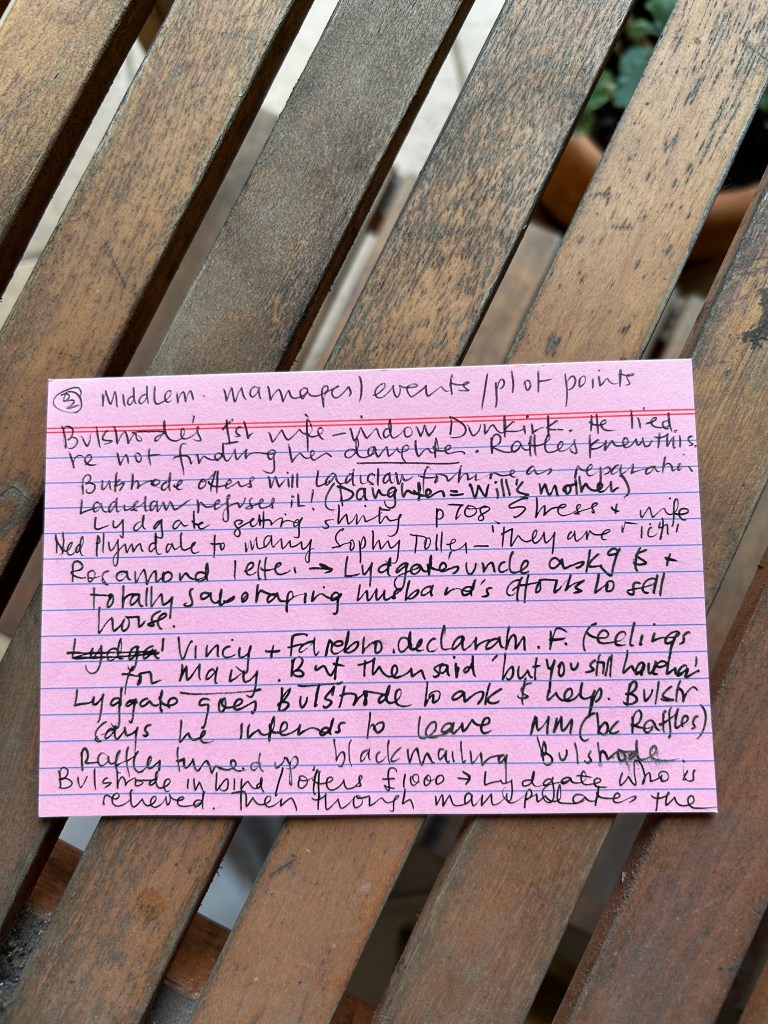 ③ Middlem. marriages/events/plot points
Bulstrode's 1st wife - widow Dunkirk. He lied
re not finding her daughter. Raffles knew this.
Bulstrode offers Will Ladislaw fortune as reparation
Ladislaw refuses it! (Daughter = Will's mother)
Lydgate getting shirty p708 Stress + wife
Ned Plymdale to marry Sophy Toller - 'they are rich'
Rosamond letter → Lydgate's uncle askg $ +
totally sabotaging husband's efforts to sell
house.
Lydga Vincy + Farebro. declaratn. F. feelings
for Mary. But then said 'but you still have her'
Lydgate goes Bulstrode to ask $ help. Bulstr
says he intends to leave MM (bc Raffles)
Raffles turned up blackmailing Bulstrode
Bulstrode in bind/offers £1000 → Lydgate who is
relieved. Then though manipulates the